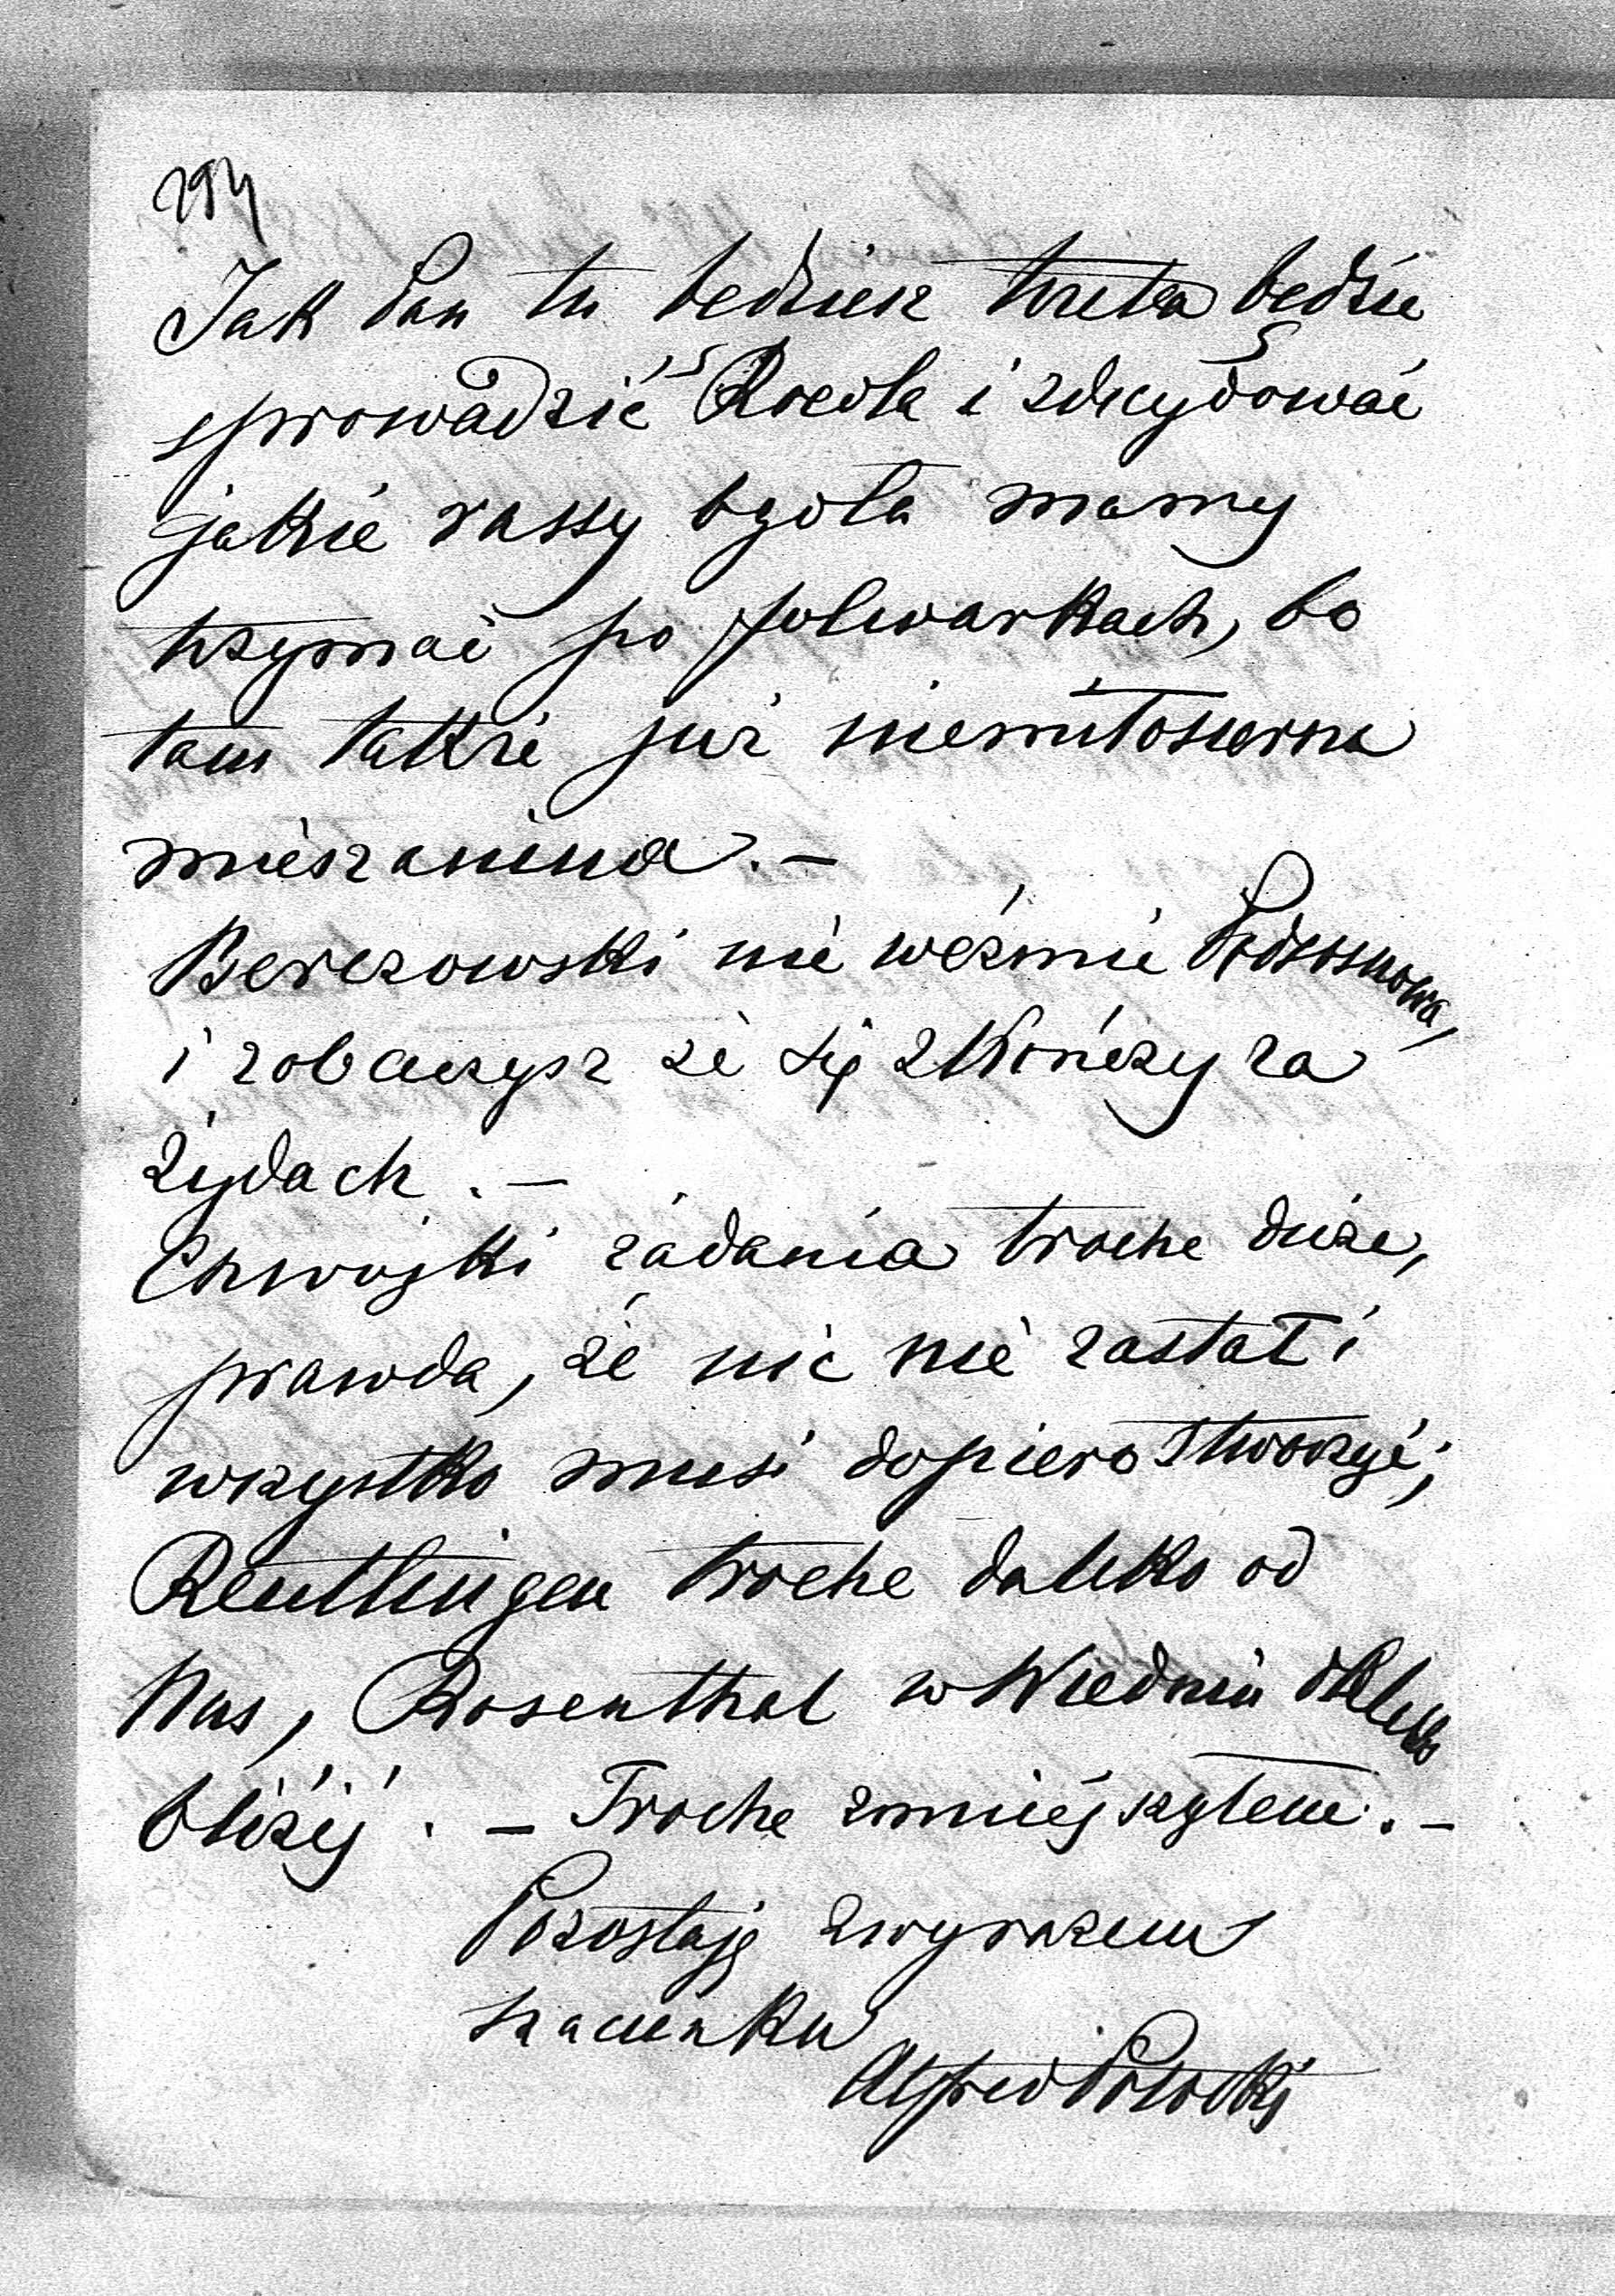 294
Jak Pan tu będziesz trzeba będzie
sprowadzić Roedla i zdecydować
jakie rassy bydła mamy
trzymać po folwarkach, bo
tam także już niemiłosierna
mieszanina. —
Berezowski nie weźmie Podsosnowa,
i zobaczysz że się zkończy za
żydach. —
Chwojki żądania troche duże,
prawda, że nic nie zastał i
wszystko musi dopiero stworzyć;
Reutlingen troche daleko od
Nas, Rosenthal w Wiedniu daleko
bliżéj. — Troche zmniejszyłem. —
Pozostaję z wyrazem
szacunku
Alfred Potocki